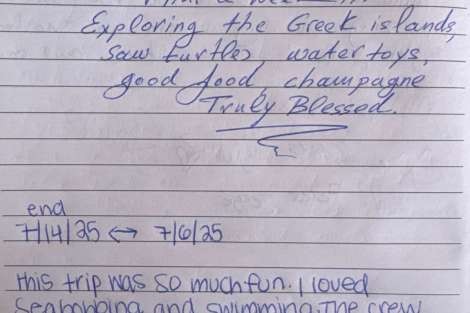 Exploring the Greek islands,
Saw turtles, water toys,
good food, champagne
Truly Blessed.
end
7/14/25 ↔ 7/6/25
this trip was so much fun. I loved
Seabobbing and swimming. The crew